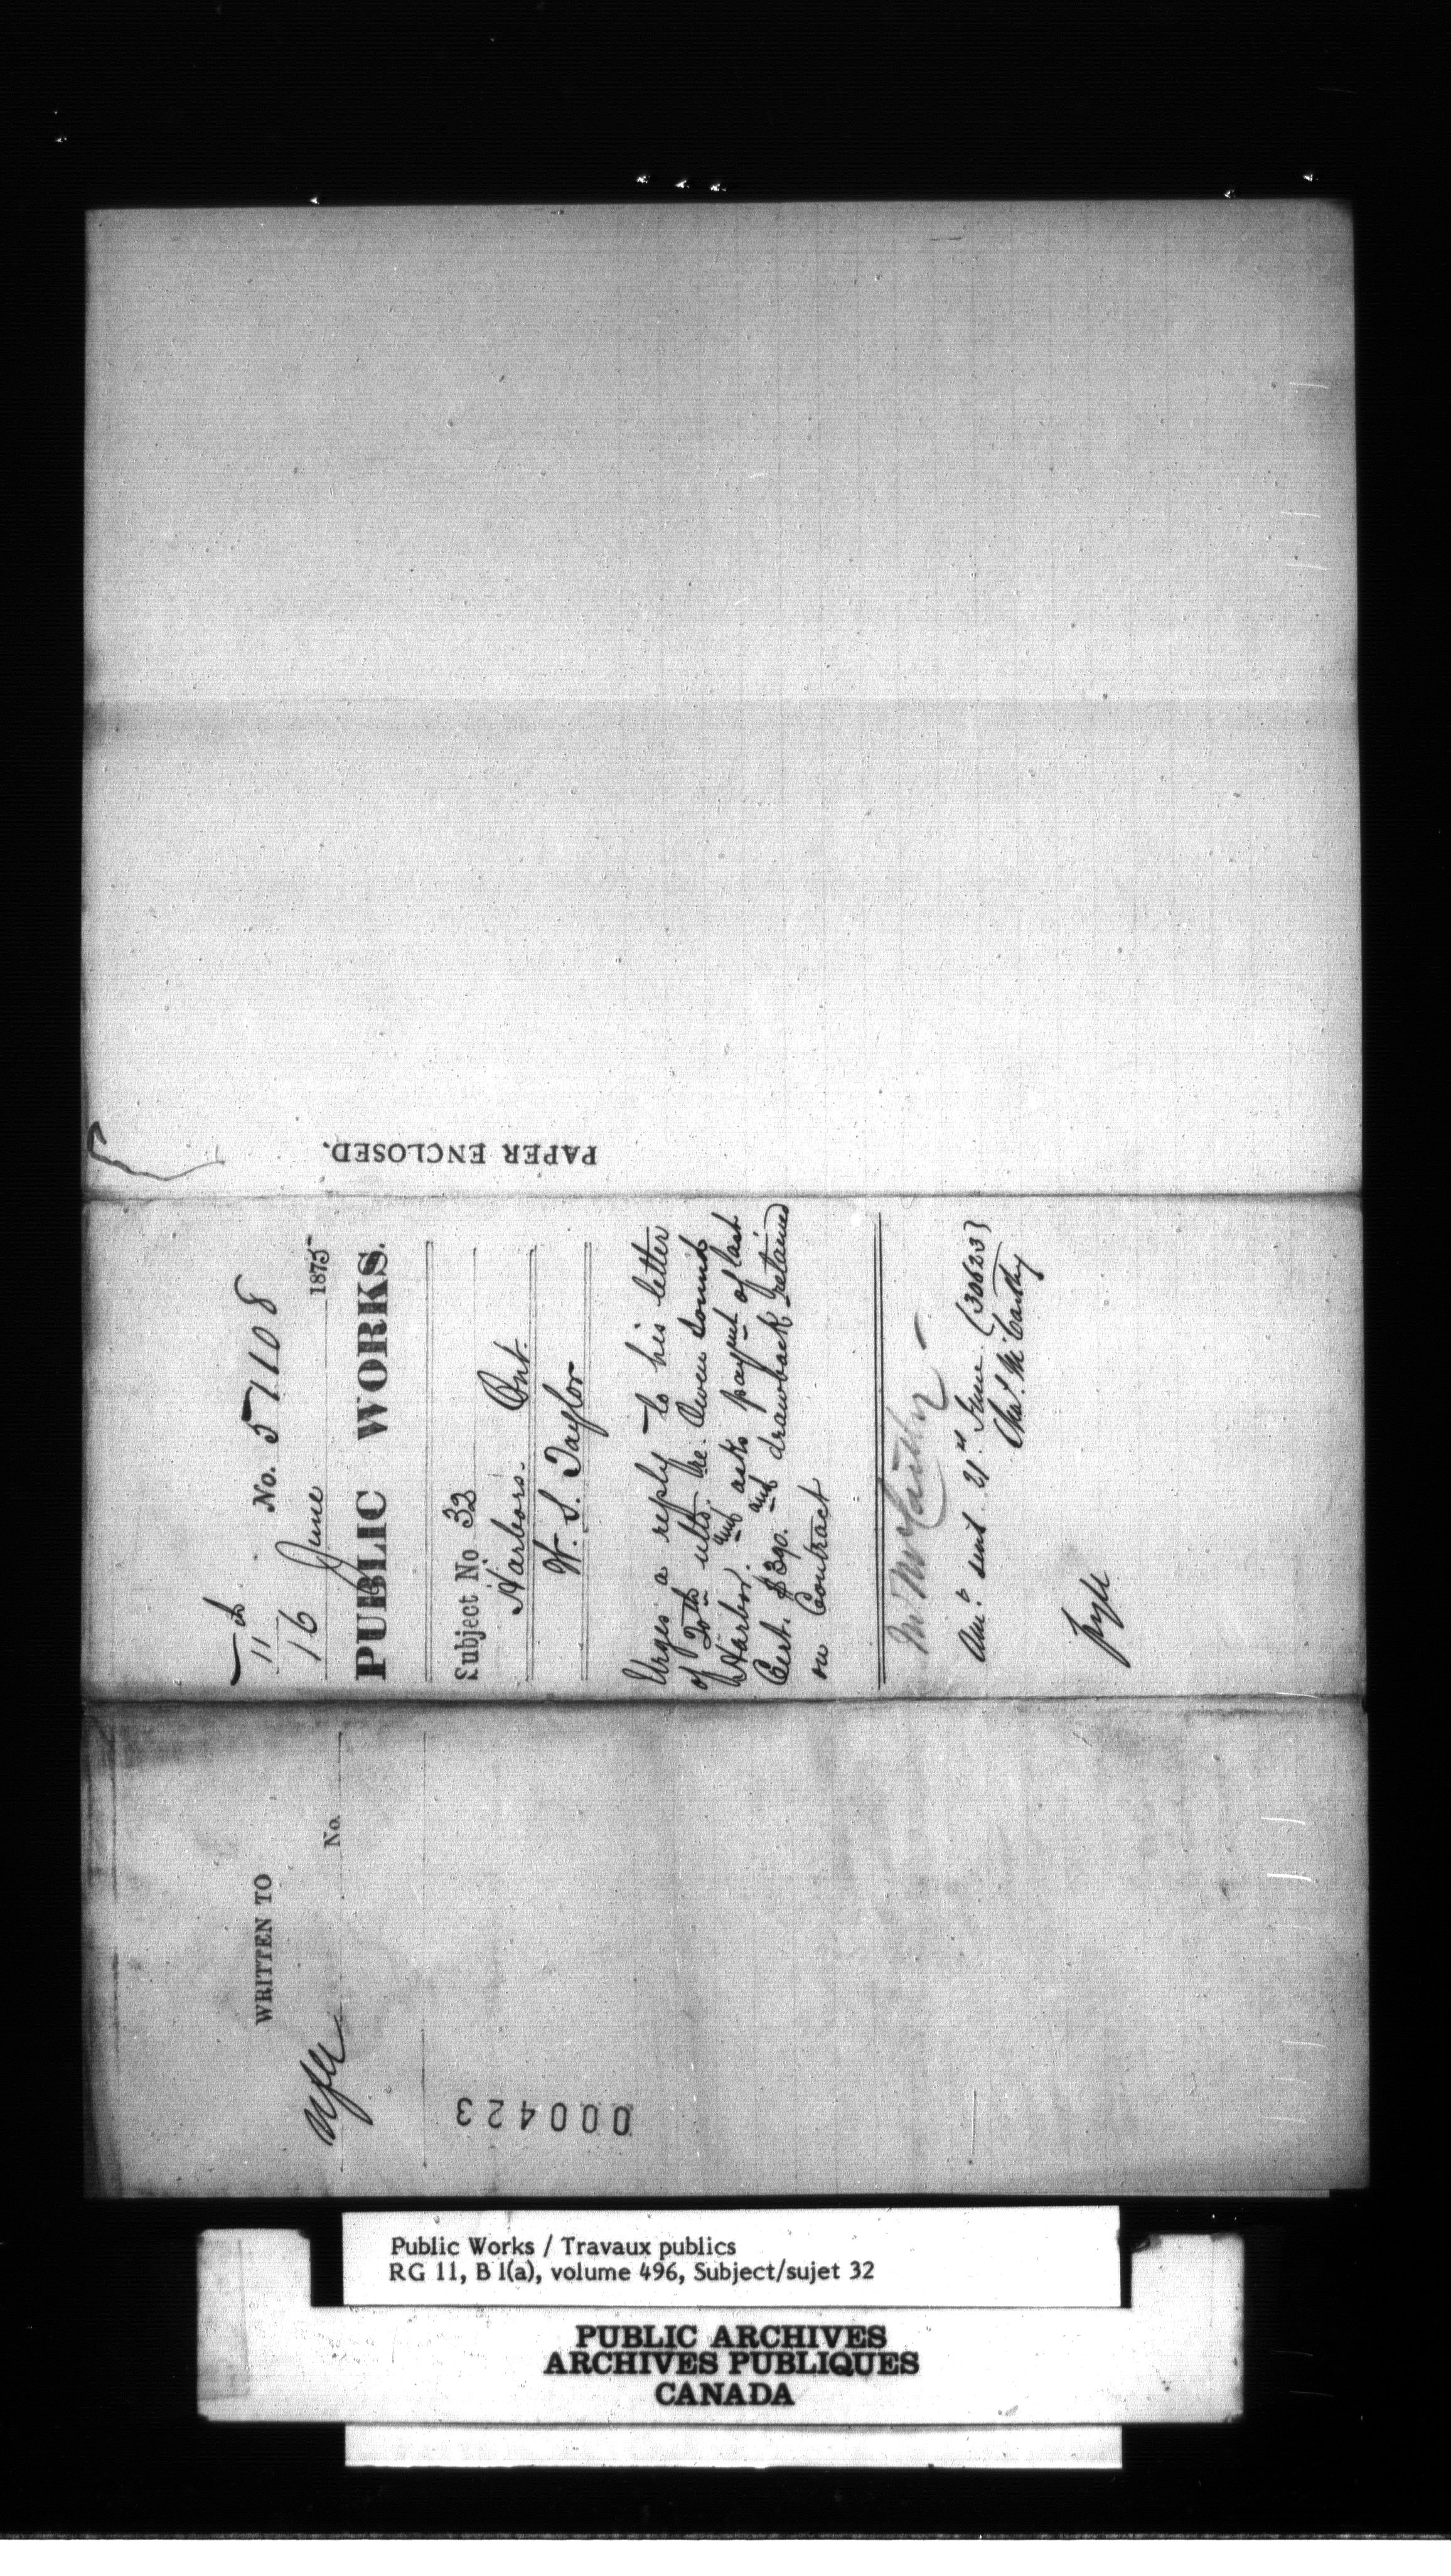 11th No. 57108
16 June 1875
PUBLIC WORKS.
Subject No 32
Harbors. Ont.
W. S. Taylor
Urges a reply to his letter
of 20th ulto. re. Owen Sound
Harbor. and asks paymt of last
Cert. $390. and drawback retained
on Contract
Mr McCarthy
Ansd sent 21st June (30623)
Chas. McCarthy
fyle
PAPER ENCLOSED.
WRITTEN TO
No.
000423
Public Works / Travaux publics
RG 11, B 1(a), volume 496, Subject/sujet 32
PUBLIC ARCHIVES
ARCHIVES PUBLIQUES
CANADA